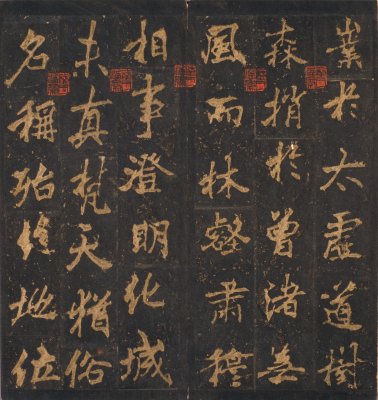 業於太虛道樹
森梢於曾渚無
風而林壑肅穆
相事澄明化城
未真梵天猶俗
名稱殆地位